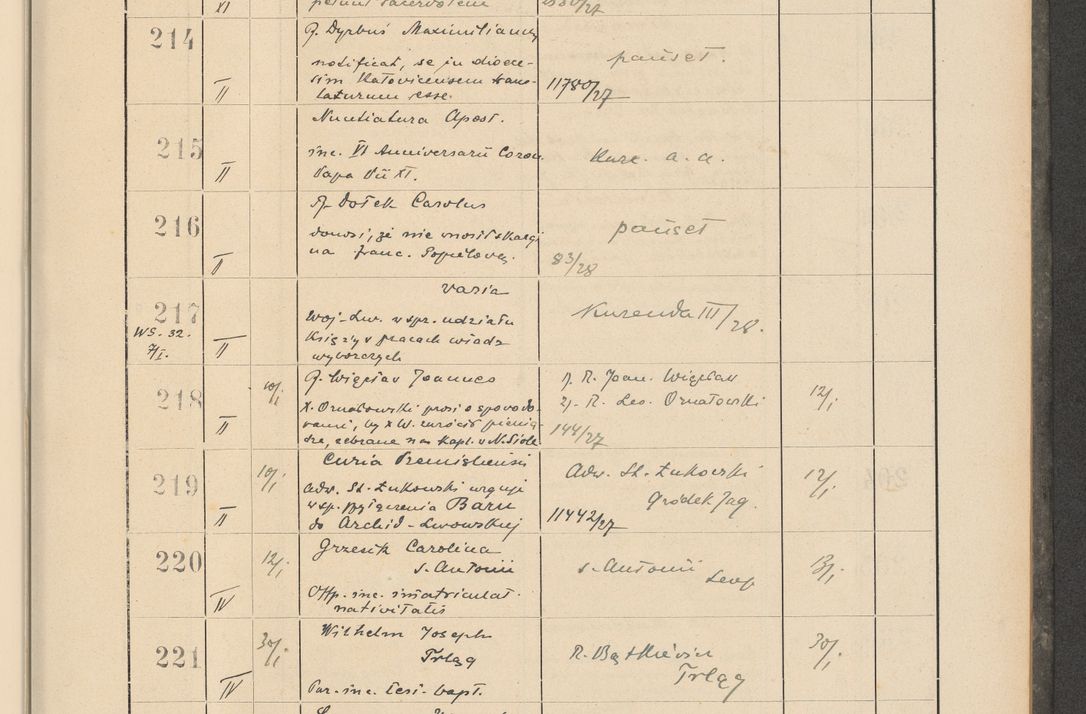 XI
214
R. Dyrbuś Maximilianus
notificat, se in dioece-
sim Katovicensem trans-
laturum esse.
II
pariset.
11780/27
215
Nuntiatura Apost.
inc. VI Anniversarii Coron.
Papa Pii XI.
II
Kurr. a. a.
216
R. Dołek Carolus
donosi, że nie wnosił skargi
na franc. Popielową.
II
pariset
83/28
217
WS. 32.
7/I.
varia
Woj. Lw. w spr. udziału
Księży w pracach władz
wyborczych
II
Kurenda III/28.
218
10/I
R. Więcław Joannes
X. Ornatowski prosi o spowodo-
wanie, by X W. zwrócił pienią-
dze, zebrane na kapl. w N. Siole
II
1. R. Joan. Więcław
2. R. Leo. Ornatowski
144/27
12/I
219
10/I
Curia Premisliensis
Adw. St. Żukowski urguje
w sp. przyłączenia Baru
do Archid. Lwowskiej
II
Adw. St. Żukowski
Gródek Jag.
11442/27
12/I
220
12/I
Grzesik Carolina
s. Antonii
Off. inc. imatriculat.
nativitatis
IV
s. Antonii
Leop
13/I
221
30/I
Wilhelm Joseph
Trląg
Par. inc. test. bapt.
IV
R.
Trląg
30/I
204